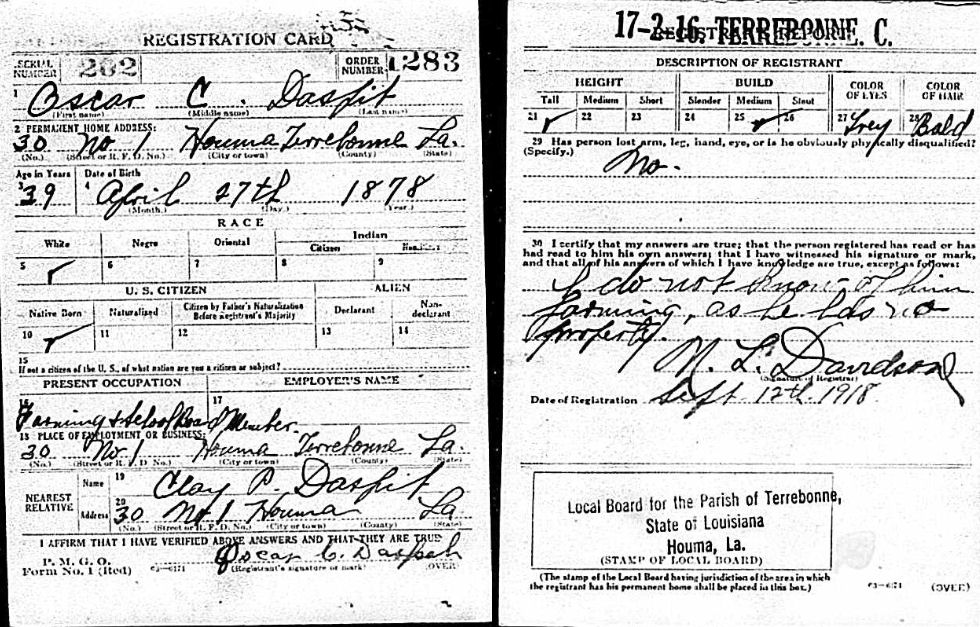 REGISTRATION CARD
SERIAL NUMBER 202 ORDER NUMBER 1283
1 Oscar C. Daspit
(First name) (Middle name) (Last name)
2 PERMANENT HOME ADDRESS:
30 No 1 Houma Terrebonne La.
(No.) (Street or R. F. D. No.) (City or town) (County) (State)
Age in Years Date of Birth
3 39 4 April 27th 1878
(Month.) (Day.) (Year.)
RACE
White Negro Oriental Indian
Citizen
5 ✓ 6 7 8 9
U. S. CITIZEN ALIEN
Native Born Naturalized Citizen by Father's Naturalization Before Registrant's Majority Declarant Non-declarant
10 ✓ 11 12 13 14
15
If not a citizen of the U. S., of what nation are you a citizen or subject?
PRESENT OCCUPATION EMPLOYER'S NAME
16 17
Farming & School Board Member.
18 PLACE OF EMPLOYMENT OR BUSINESS:
30 No. 1 Houma Terrebonne La.
(No.) (Street or R. F. D. No.) (City or town) (County) (State)
NEAREST RELATIVE
Name 19 Clay P. Daspit
Address 20 30 No 1 Houma La
(No.) (Street or R. F. D. No.) (City or town) (County) (State)
I AFFIRM THAT I HAVE VERIFIED ABOVE ANSWERS AND THAT THEY ARE TRUE
P. M. G. O.
Form No. 1 (Red) 03-6171 Oscar C. Daspit
(Registrant's signature or mark) (OVER)
17-2-16. TERREBONNE. C.
REGISTRAR'S REPORT
DESCRIPTION OF REGISTRANT
HEIGHT BUILD COLOR OF EYES COLOR OF HAIR
Tall Medium Short Slender Medium Stout
21 ✓ 22 23 24 25 ✓ 26 27 Grey 28 Bald
29 Has person lost arm, leg, hand, eye, or is he obviously physically disqualified?
(Specify.)
No.
30 I certify that my answers are true; that the person registered has read or has
had read to him his own answers; that I have witnessed his signature or mark,
and that all of his answers of which I have knowledge are true, except as follows:
I do not know of him
farming, as he has no
property.
M. L. Davidson
(Signature of Registrar)
Date of Registration Sept. 12th. 1918
Local Board for the Parish of Terrebonne,
State of Louisiana
Houma, La.
(STAMP OF LOCAL BOARD)
(The stamp of the Local Board having jurisdiction of the area in which
the registrant has his permanent home shall be placed in this box.)
03-6171 (OVER)